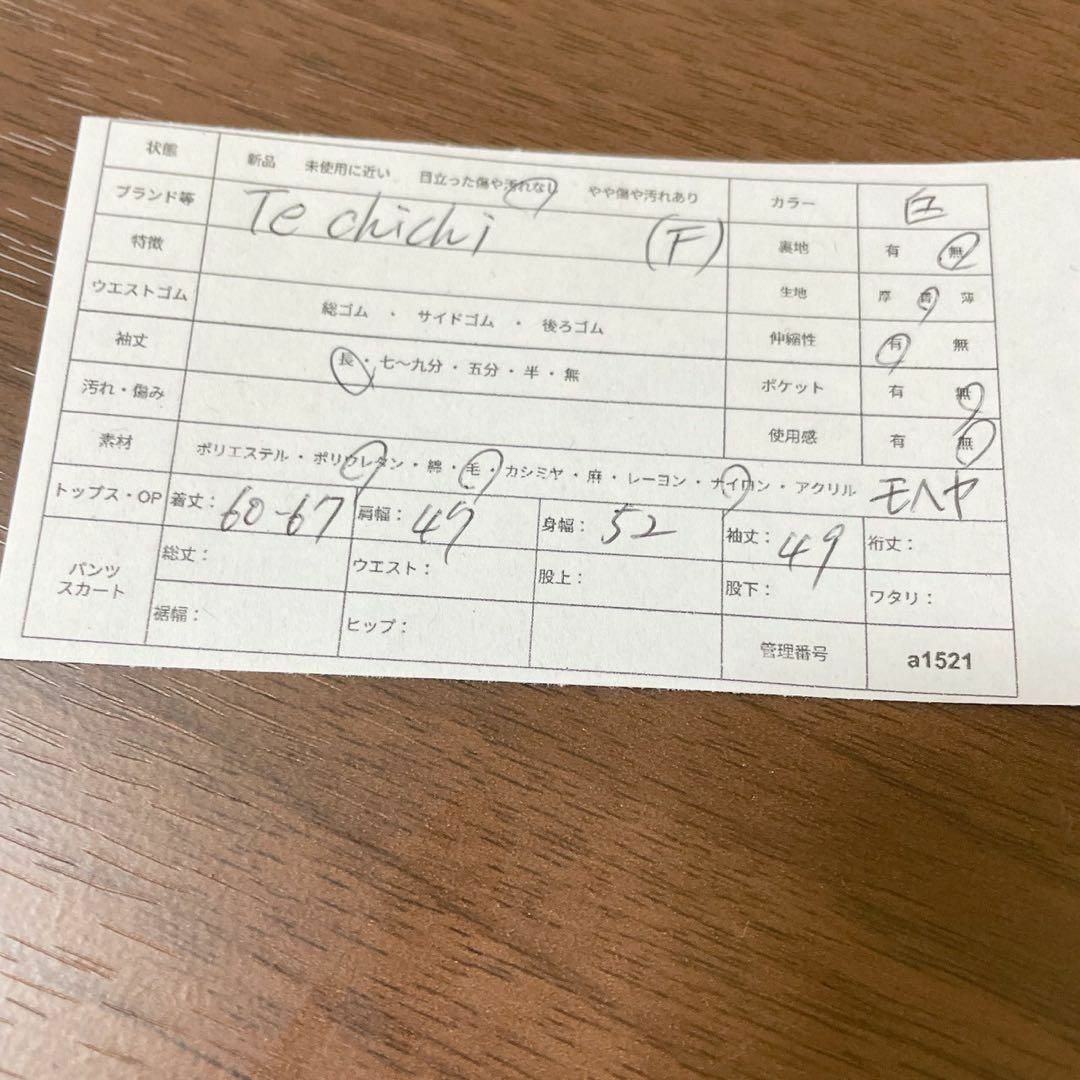 状態 新品 未使用に近い 目立った傷や汚れなし やや傷や汚れあり カラー 白
ブランド等 Te chichi (F) 裏地 有 無
特徴 生地 厚 普 薄
ウエストゴム 総ゴム ・ サイドゴム ・ 後ろゴム 伸縮性 有 無
袖丈 長・七〜九分・五分・半・無 ポケット 有 無
汚れ・傷み 使用感 有 無
素材 ポリエステル・ポリウレタン・綿・毛・カシミヤ・麻・レーヨン・ナイロン・アクリル モヘヤ
トップス・OP 着丈: 60-67 肩幅: 47 身幅: 52 袖丈: 49 裄丈:
パンツ スカート 総丈: ウエスト: 股上: 股下: ワタリ:
裾幅: ヒップ: 管理番号 a1521